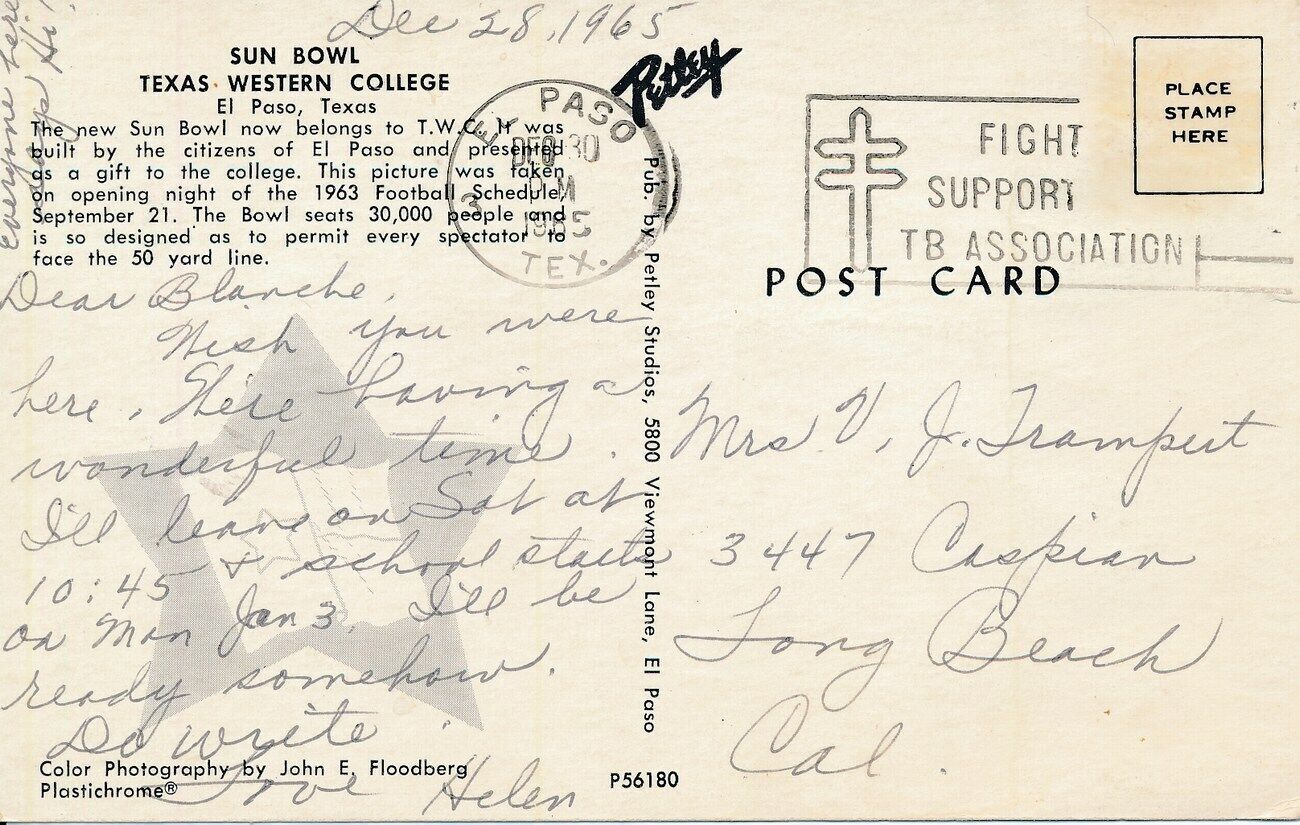 Dec 28, 1965
Everyone here
says Hi!
SUN BOWL
TEXAS WESTERN COLLEGE
El Paso, Texas
The new Sun Bowl now belongs to T.W.C. It was
built by the citizens of El Paso and presented
as a gift to the college. This picture was taken
on opening night of the 1963 Football Schedule,
September 21. The Bowl seats 30,000 people and
is so designed as to permit every spectator to
face the 50 yard line.
Dear Blanche,
Wish you were
here. We're having a
wonderful time.
I'll leave on Sat at
10:45 + school starts
on Mon Jan 3. I'll be
ready somehow.
Do write
Love Helen
Color Photography by John E. Floodberg
Plastichrome®
P56180
Petley
Pub. by Petley Studios, 5800 Viewmont Lane, El Paso
EL PASO
DEC 30
PM
1965
TEX.
3
FIGHT
SUPPORT
TB ASSOCIATION
PLACE
STAMP
HERE
POST CARD
Mrs V. J. Trampert
3447 Caspian
Long Beach
Cal.